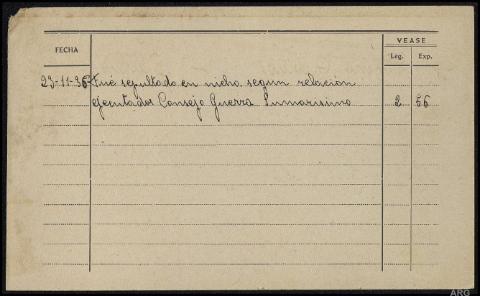 VEASE
FECHA
Leg. Exp.
23-11-36 Fué sepultado en nicho segun relacion
ejecutados Consejo Guerra Sumarisimo 2 56
ARG